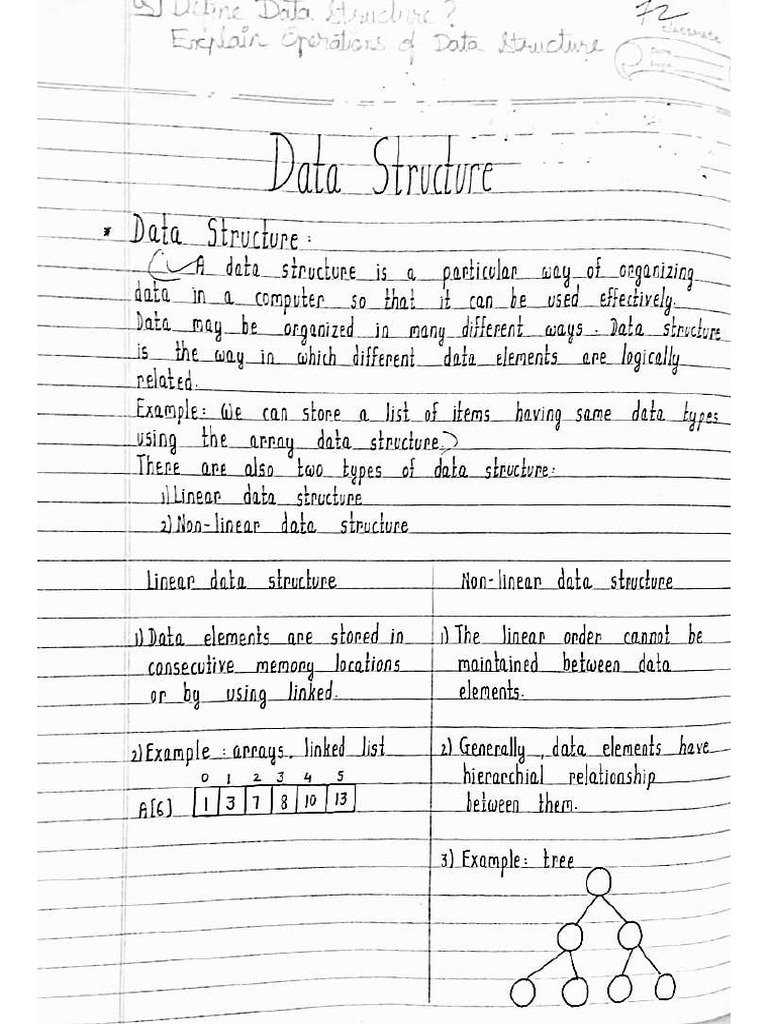 Q5] Define Data Structure?
72
Explain Operations of Data Structure
classmate
Date
Page
Data Structure
* Data Structure:
A data structure is a particular way of organizing
data in a computer so that it can be used effectively.
Data may be organized in many different ways. Data structure
is the way in which different data elements are logically
related.
Example: We can store a list of items having same data types
using the array data structure.
There are also two types of data structure:
1) Linear data structure
2) Non-linear data structure
Linear data structure
1) Data elements are stored in
consecutive memory locations
or by using linked.
2) Example: arrays, linked list
0 1 2 3 4 5
A[6] 1 3 7 8 10 13
Non-linear data structure
1) The linear order cannot be
maintained between data
elements.
2) Generally, data elements have
hierarchial relationship
between them.
3) Example: tree